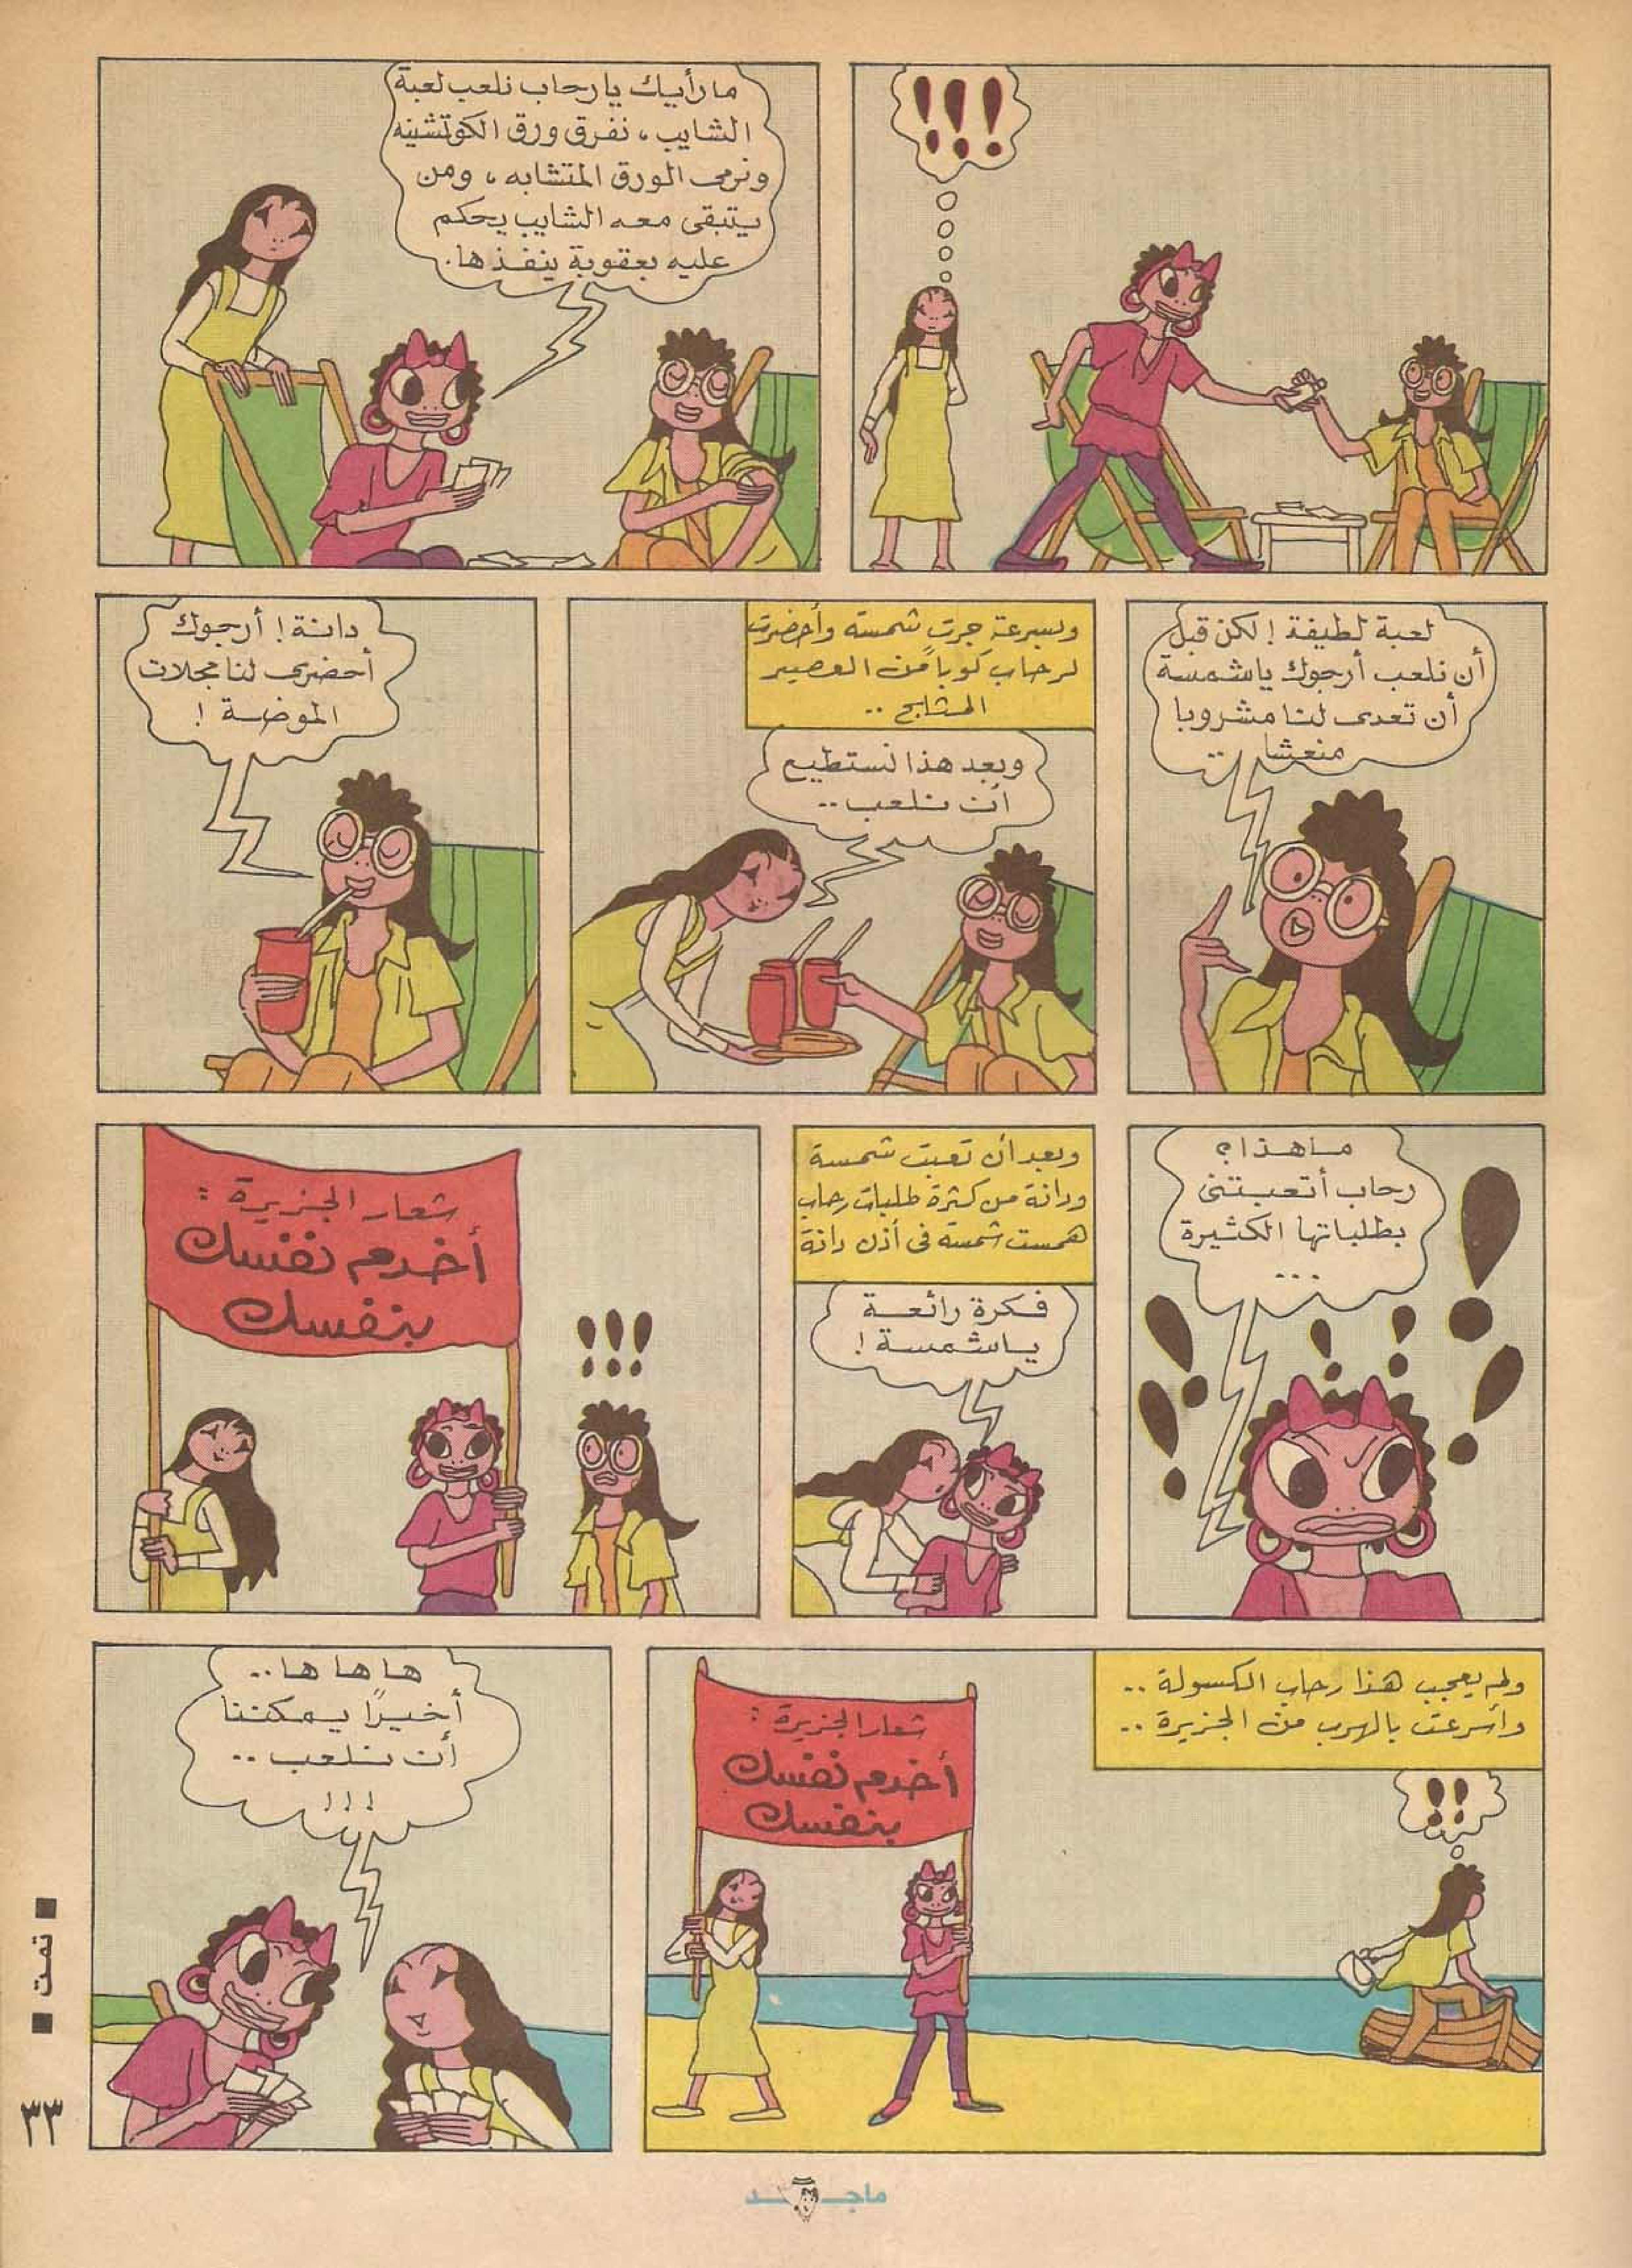 !!!
ما رأيك يا رحاب نلعب لعبة
الشايب، نفرق ورق الكوتشينه
ونرمى الورق المتشابه، ومن
يتبقى معه الشايب يحكم
عليه بعقوبة ينفذها.
لعبة لطيفة! لكن قبل
أن نلعب أرجوك يا شمسة
أن تعدى لنا مشروبا
منعشا ..
وبسرعة جرت شمسة وأحضرت
لرحاب كوباً من العصير
المثلج ..
وبعد هذا نستطيع
أن نلعب ..
دانة! أرجوك
أحضرى لنا مجلات
الموضة!
ما هذا؟
رحاب أتعبتنى
بطلباتها الكثيرة
...
وبعد أن تعبت شمسة
ودانة من كثرة طلبات رحاب
همست شمسة فى أذن دانة
فكرة رائعة
يا شمسة!
شعار الجزيرة:
أخدم نفسك
بنفسك
!!!
ولم يعجب هذا رحاب الكسولة ..
وأسرعت بالهرب من الجزيرة ..
!!
شعار الجزيرة:
أخدم نفسك
بنفسك
ها ها ها ..
أخيرًا يمكننا
أن نلعب ..
!!!
■ تمت ■
٣٣
ماجد